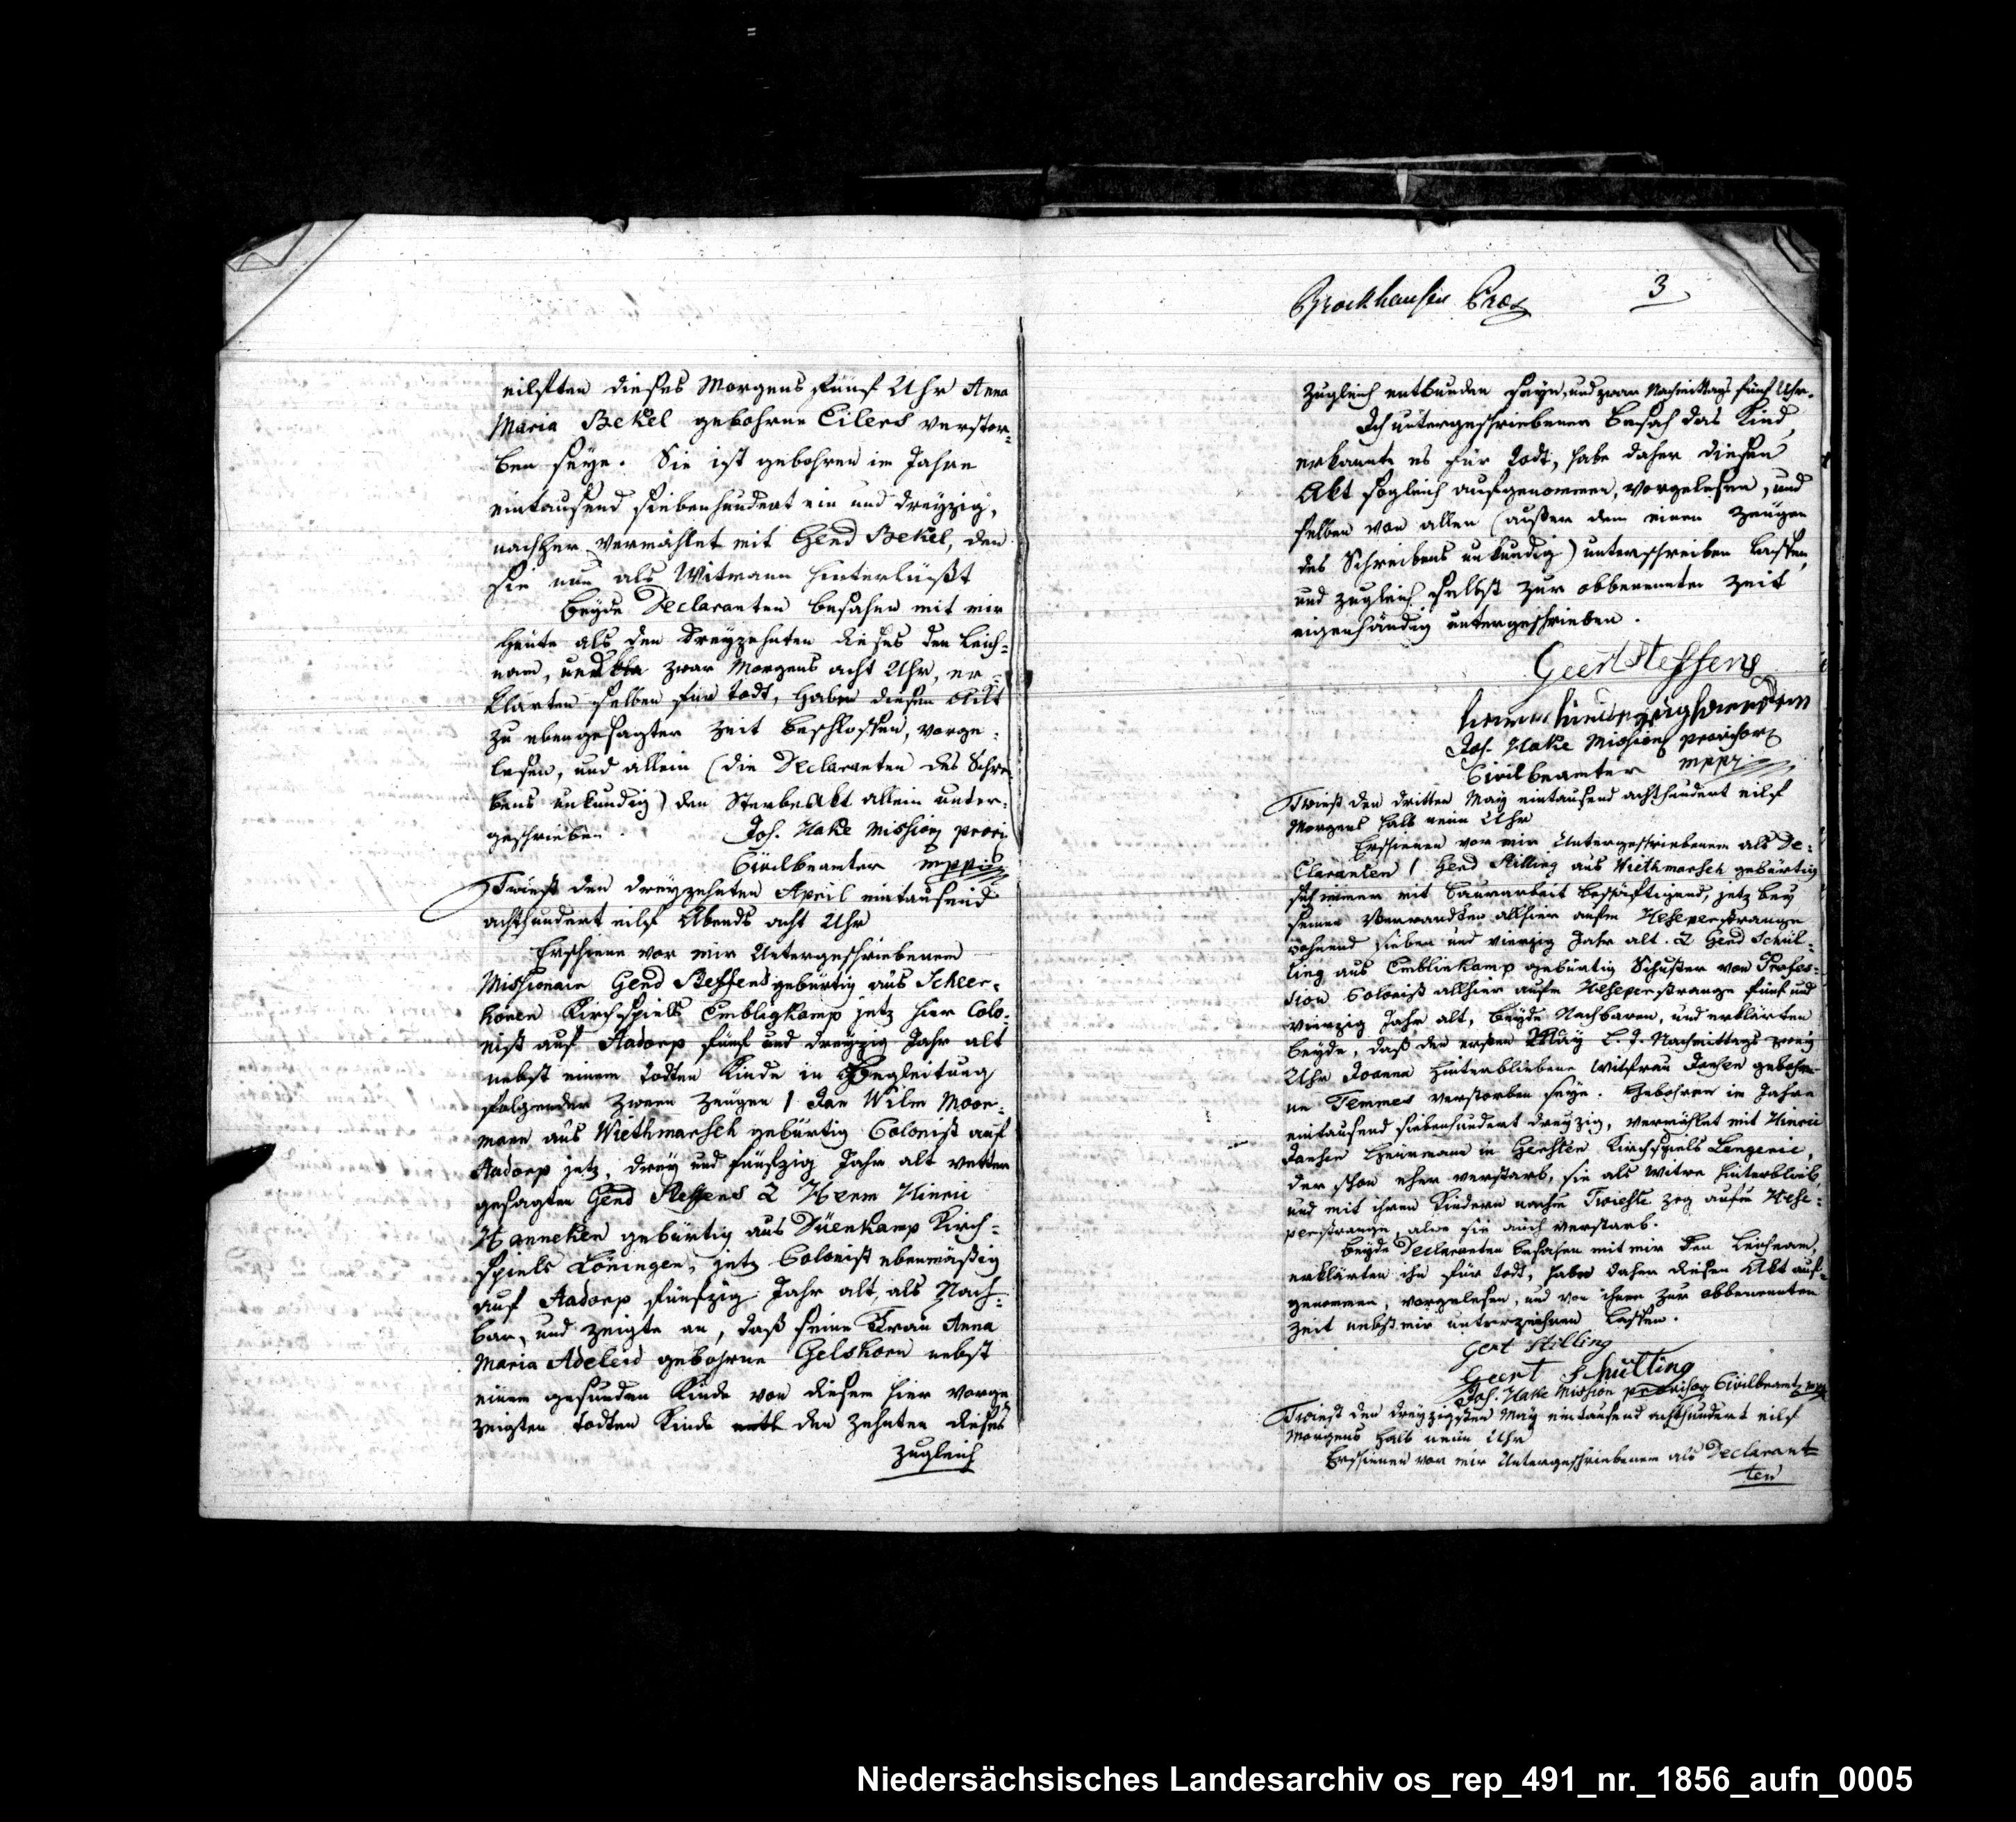 eilften dieses Morgens fünf Uhr Anna
Maria Bekel gebohrne Eilers verstor=
ben seye. Sie ist gebohren im Jahre
eintausend siebenhundert ein und dreyzig,
nachher vermählet mit Gerd Bekel, den
sie nun als Witmann hinterläßt
Beyde Declaranten besahen mit mir
heute als den dreyzehnten dieses den Leich=
nam, und zwar Morgens acht Uhr, er=
klärten selben für todt, habe diesen Akt
zu ebengesagter Zeit beschlossen, vorge=
lesen, und allein (die Declaranten des Schrei
bens unkundig) den Sterbeakt allein unter=
geschrieben. Joh. Hake Mission
Civilbeamter mppia
Twist den dreyzehnten April eintausend
achthundert eilf Abends acht Uhr
Erschiene vor mir Untergeschriebenem
Missionair Gerd Steffens gebürtig aus Scheer=
hören Kirchspiels Embligkamp jetz hier Colo=
nist auf Aadorp fünf und dreyzig Jahr alt
nebst einem todten Kinde in Begleitung
folgender zween Zeugen 1 Jan Wilm Moor=
mann aus Wiethmarsch gebürtig Colonist auf
Aadorp jetz, drey und fünfzig Jahr alt Vetter
gesagten Gerd Steffens 2 Herm Hinric
Hanneken gebürtig aus Düenkamp Kirch=
spiels Löningen, jetz Colonist ebenmäßig
auf Aadorp fünfzig Jahr alt, als Nach=
bar, und zeigte an, daß seine Frau Anna
Maria Adeleid gebohrne Gelshorn nebst
einem gesunden Kinde von diesem hier vorge
zeigten todten Kinde den zehnten dieses
zugleich
Brockhausen 3
zugleich entbunden seye, und zwar Nachmittags fünf Uhr.
Ich untergeschriebener besah das Kind,
erkannte es für todt, habe daher diesen
Akt sogleich aufgenommen, vorgelesen, und
selben von allen (außer dem einen Zeugen
des Schreibens unkundig) unterschreiben lassen,
und zugleich selbst zur obbenennten Zeit
eigenhändig untergeschrieben.
Geert Steffens
Joh. Hake Mission provisor
Civilbeamter mppia
Twist den dritten May eintausend achthundert eilf
Morgens halb neun Uhr
Erschienen vor mir Untergeschriebenem als De=
claranten 1 Gerd Stilling aus Wiethmarsch gebürtig
sich immer mit Baurarbeit beschäftigend, jetz bey
seinen Verwandten allhier aufm Heseperstrange
wohnend sieben und vierzig Jahr alt. 2 Gerd Schül=
ling aus Emblinkamp gebürtig Schuster von Profes=
sion Colonist allhier aufm Heseperstrange fünf und
vierzig Jahr alt, beyde Nachbaren, und erklärten
beyde, daß den ersten May l. J. Nachmittags
Uhr Joanna hinterbliebene Witfrau Jansen gebohr=
ne Temmes verstorben seye. Gebohren im Jahre
eintausend siebenhundert dreyzig, vermählet mit Hinric
Jansen Heürmann in Gersten Kirchspiels Lengeric,
der schon eher verstarb, sie als Witwe hinterblieb,
und mit ihren Kindern nachm Twiste zog aufm Hese=
perstrange, alwo sie auch verstarb.
Beyde Declaranten besahen mit mir den Leichnam,
erklärten ihn für todt, habe daher diesen Akt auf=
genommen, vorgelesen, und von ihnen zur obbenennten
Zeit nebst mir unterzeichnen lassen.
Gert Stilling
Geert Schülting
Joh. Hake Mission provisor Civilbeamt.
Twist den dreyzigsten May eintausend achthundert eilf
Morgens halb neun Uhr
Erschienen vor mir Untergeschriebenem als Declarant=
ten
Niedersächsisches Landesarchiv os_rep_491_nr._1856_aufn_0005